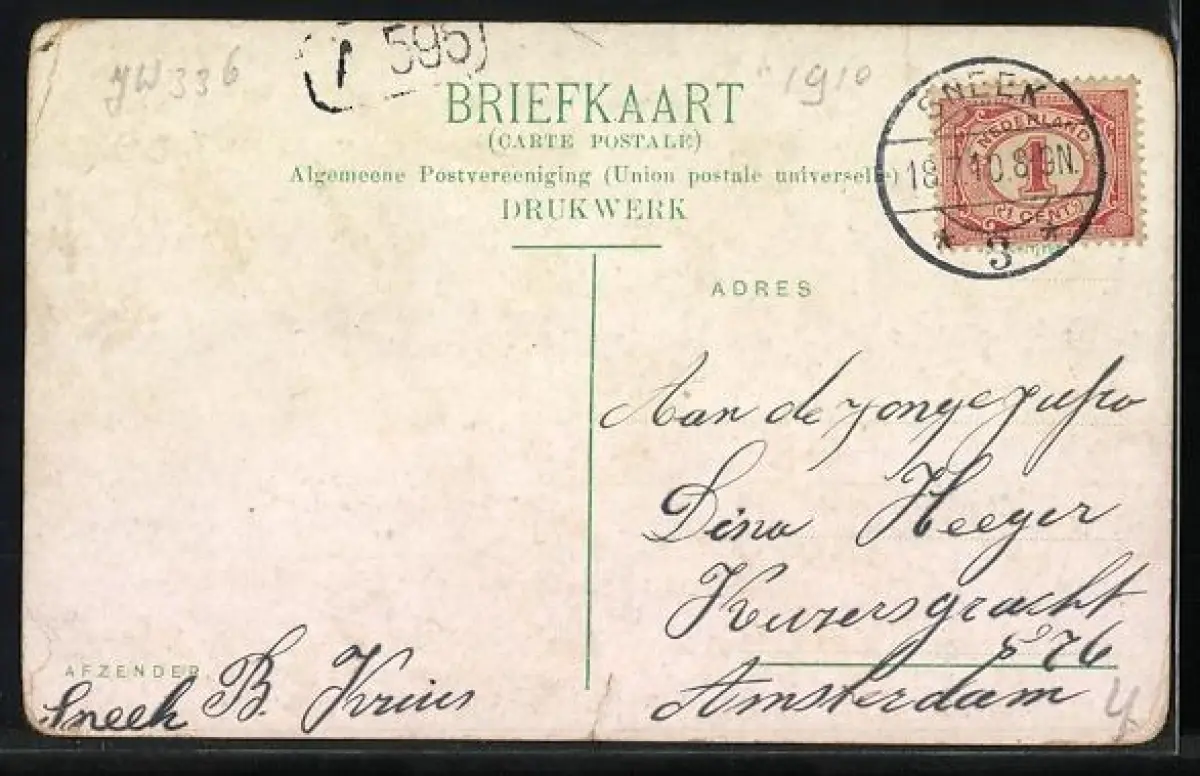 JW 336
T 595
BRIEFKAART
1910
(CARTE POSTALE)
Algemeene Postvereeniging (Union postale universelle)
DRUKWERK
SNEEK
18.7.10. 8-9N.
* 3 *
NEDERLAND
1
1 CENT
ADRES
Aan de jonge jufro
Dina Heeger
Keizersgracht
576
Amsterdam
AFZENDER
Sneek B. Kruis